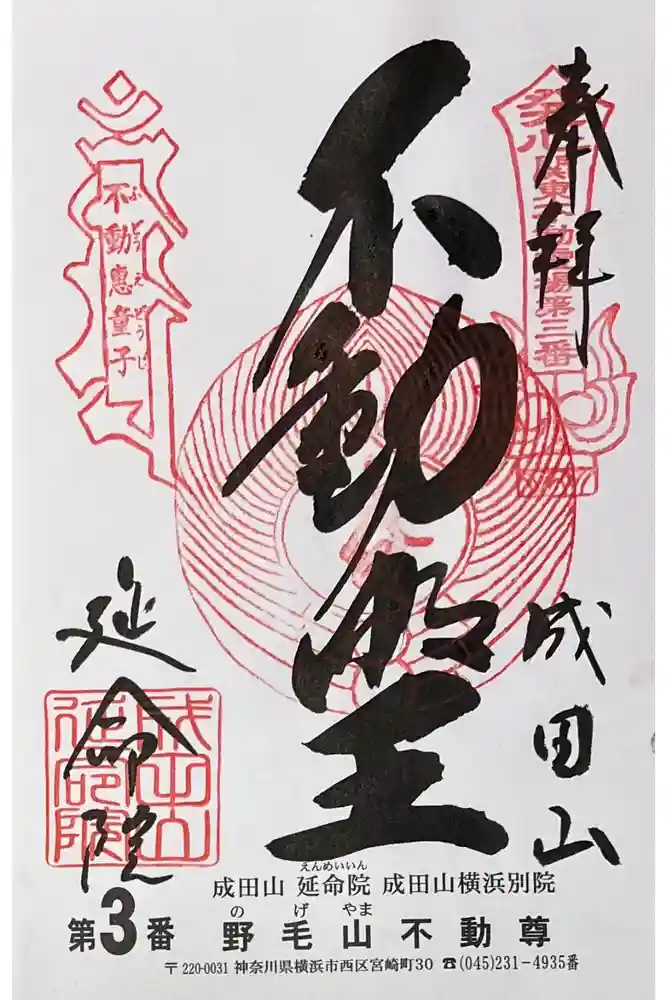 奉拝
関東
第三番
不動明王
成田山
不動恵童子
ふどうえどうじ
延命院
成田山
延命院
えんめいいん
成田山 延命院 成田山横浜別院
のげやま
第3番 野毛山不動尊
〒220-0031 神奈川県横浜市西区宮崎町30 ☎(045)231-4935番